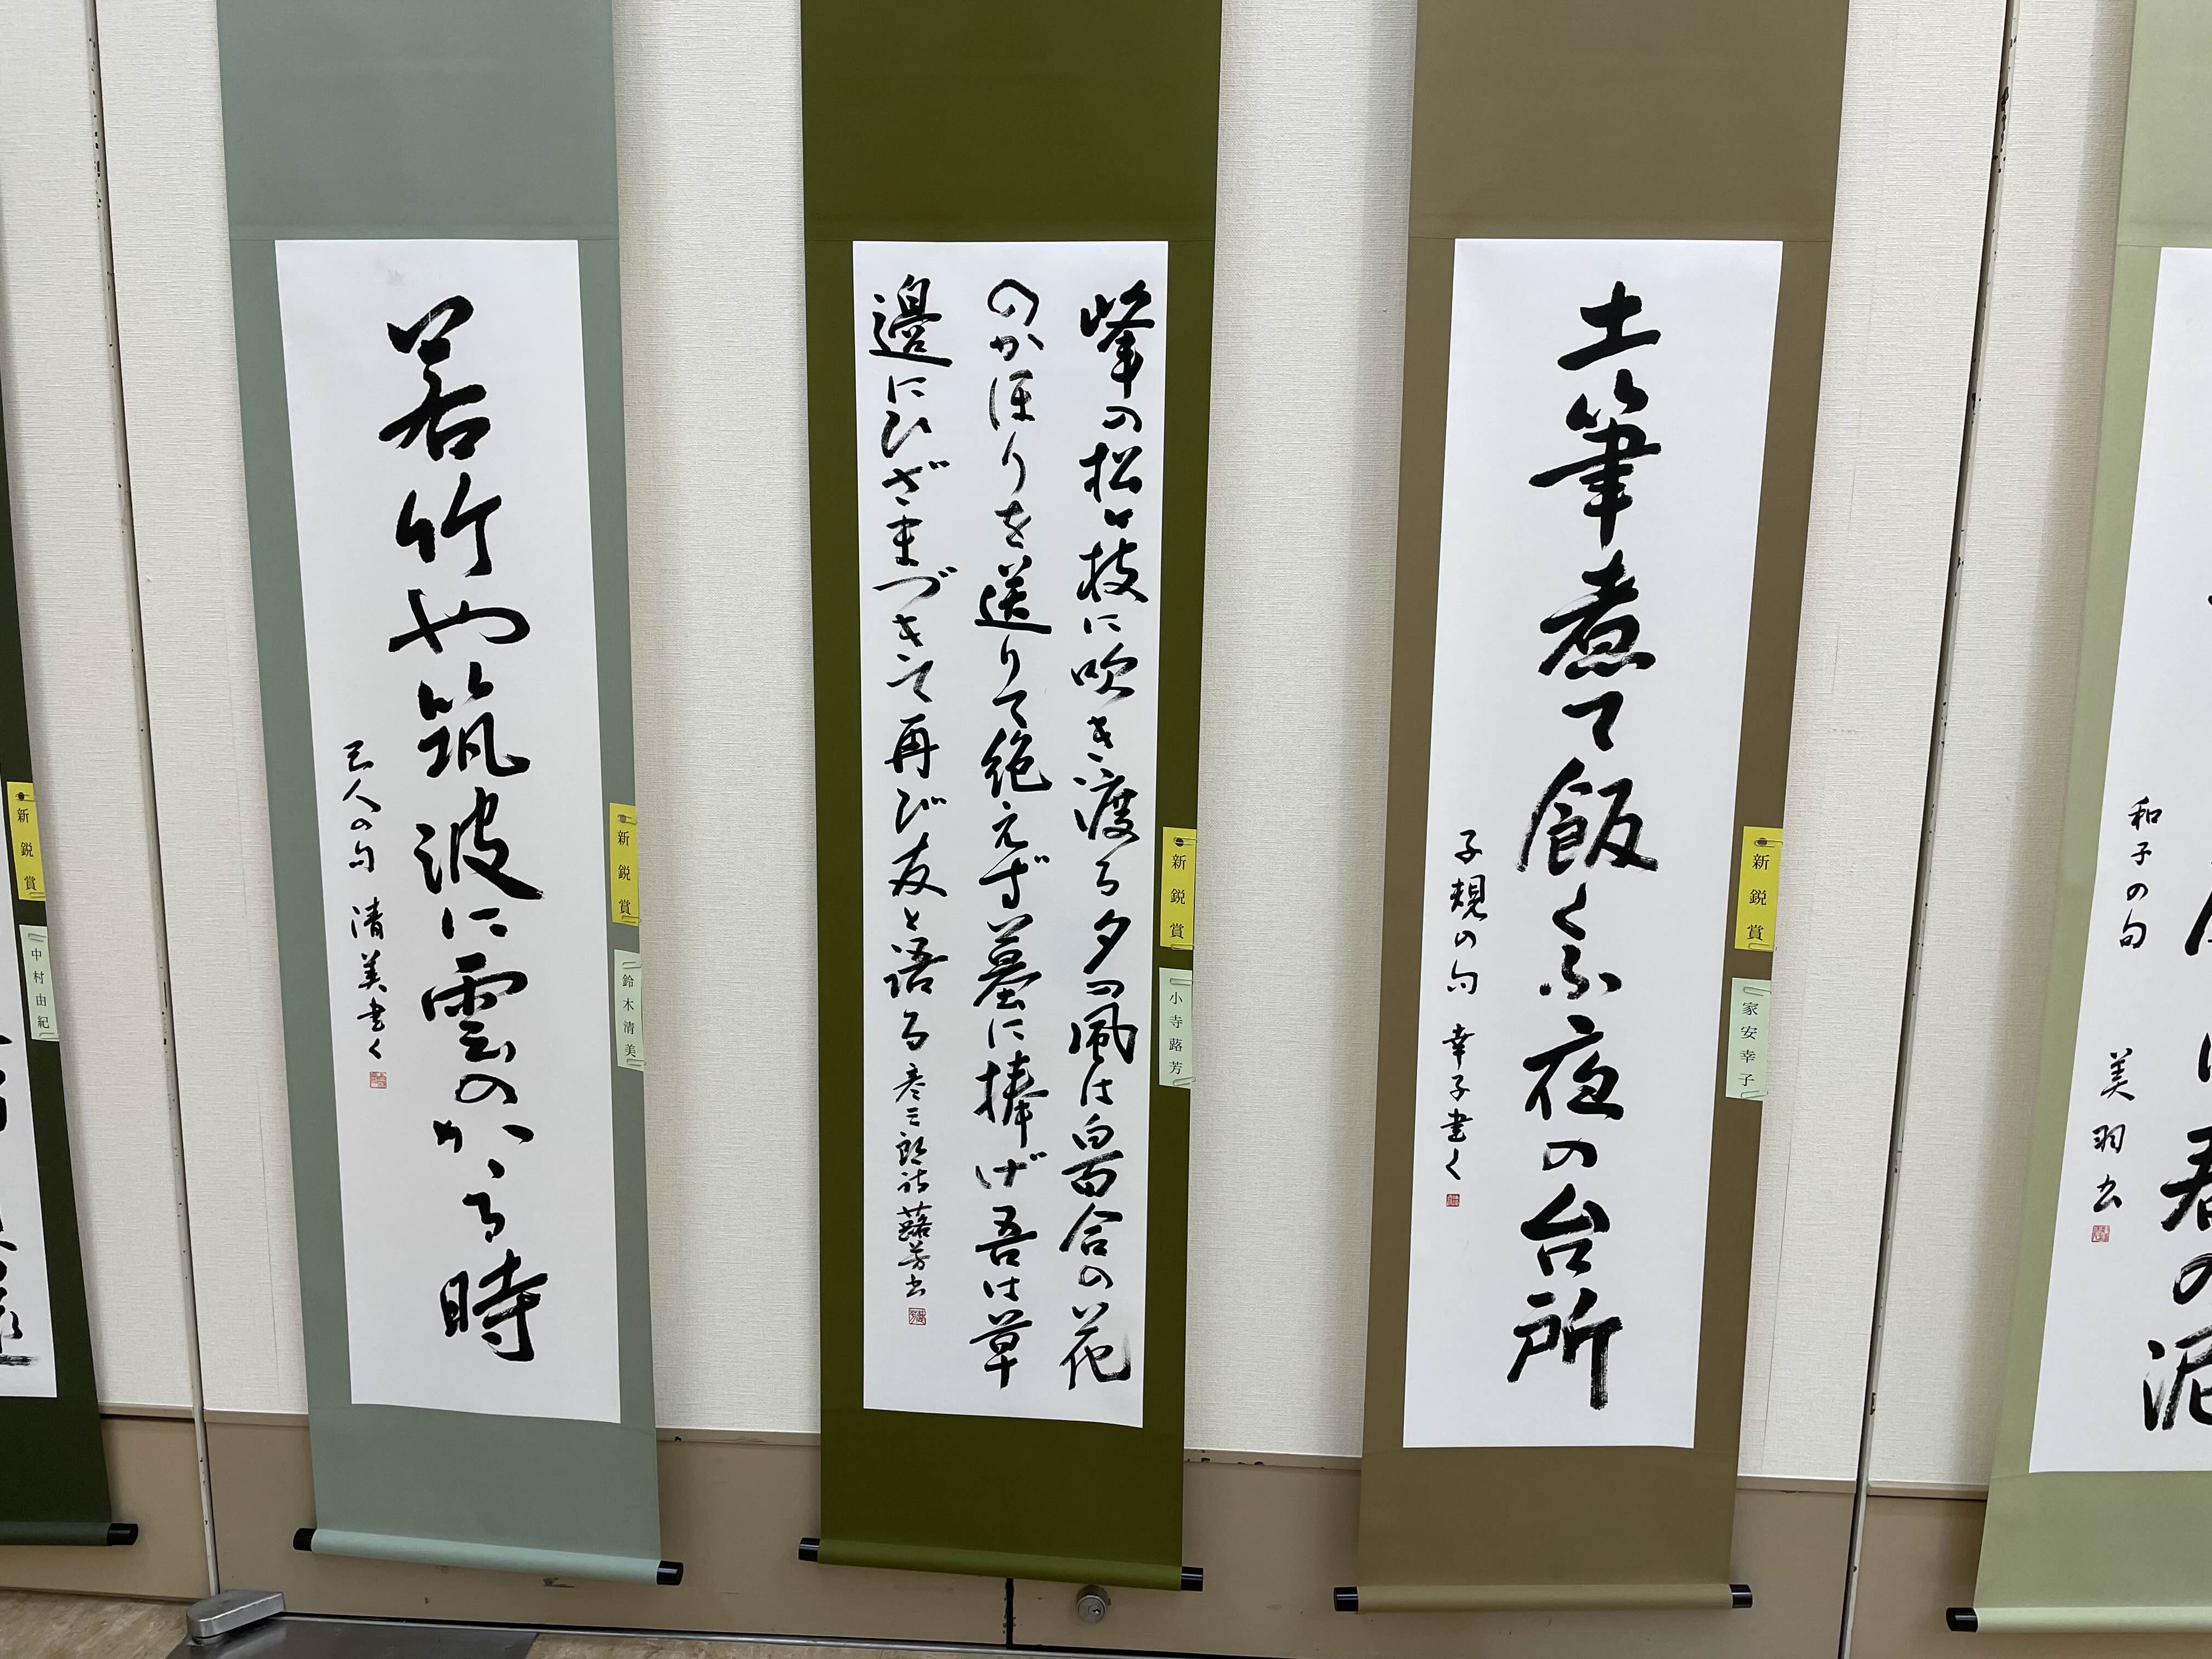 春の泥
和子の句 美羽書
新鋭賞
家安幸子
土筆煮て飯くふ夜の台所
子規の句 幸子書く
新鋭賞
小寺蕗芳
峰の松ヶ枝に吹き渡る夕つ風は白百合の花
のかほりを送りて絶えず墓に捧げ吾は草
邊にひざまづきて再び友と語る 彦三郎 蕗芳書
新鋭賞
鈴木清美
若竹や筑波に雲のかゝる時
巴人の句 清美書く
新鋭賞
中村由紀